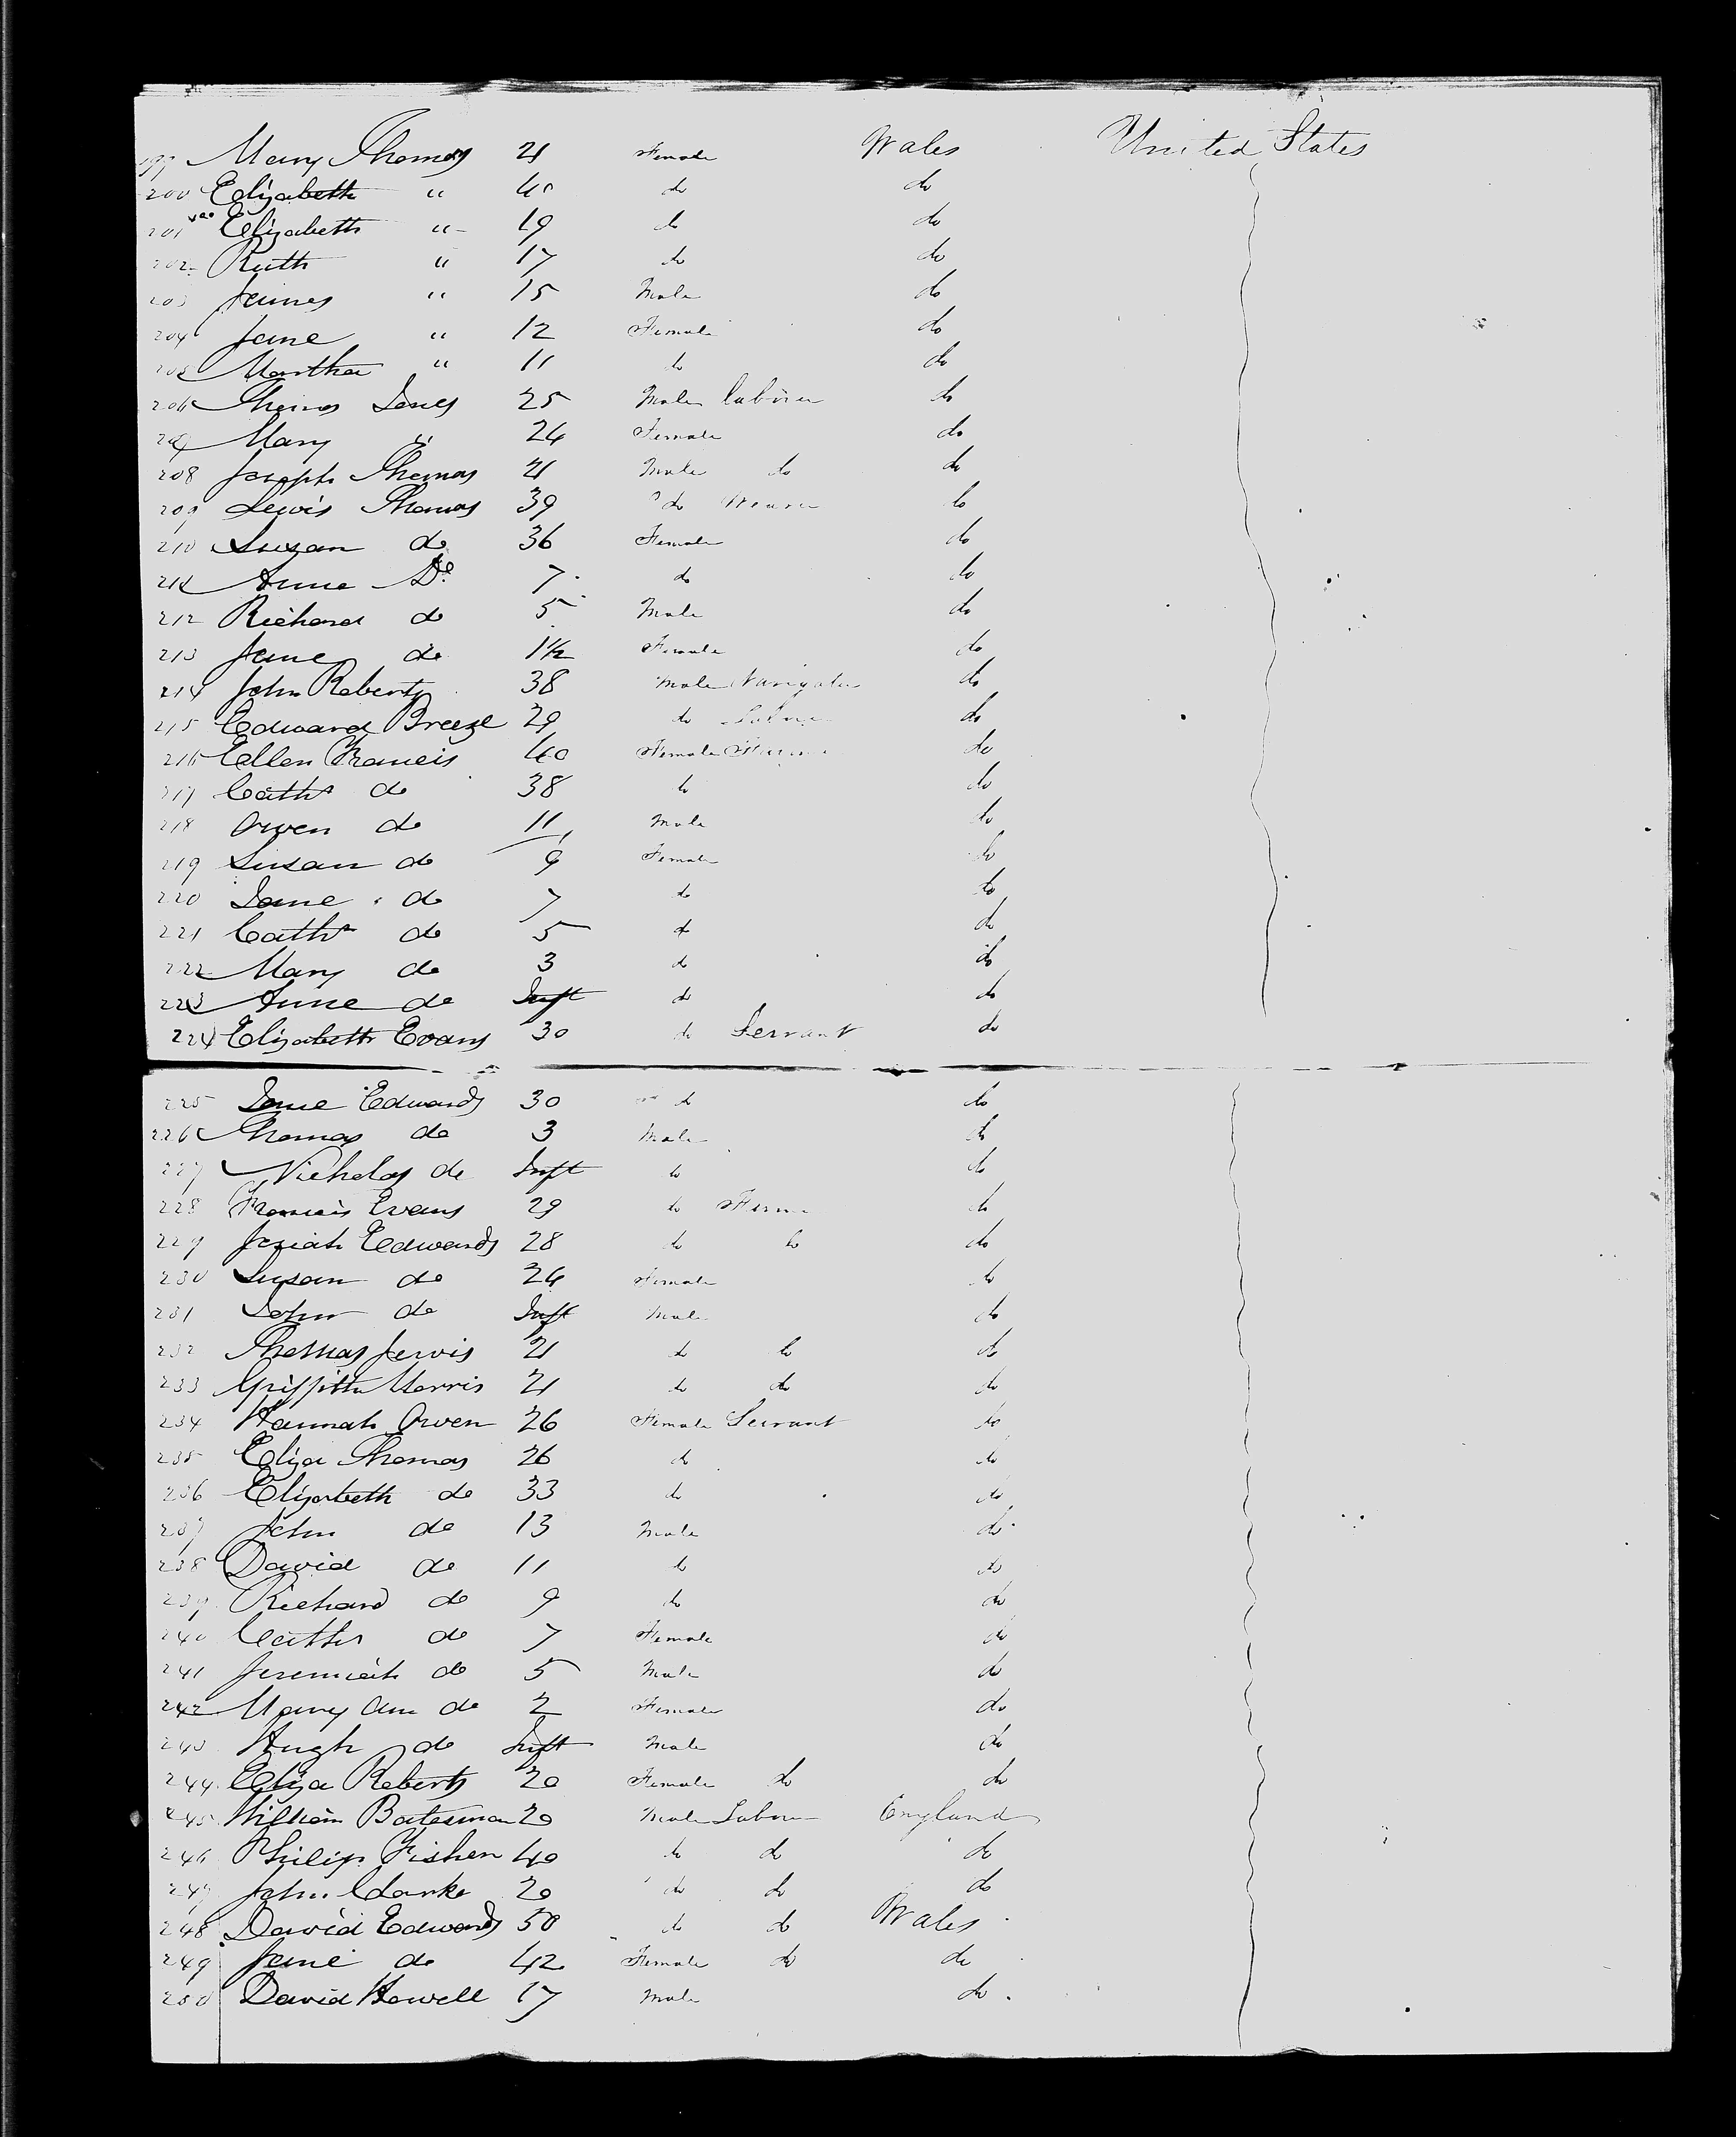 199 Mary Thomas 21 Female Wales United States
200 Elizabeth " 40 do do
201 Elizabeth " 19 do do
202 Ruth " 17 do do
203 James " 15 Male do
204 Jane " 12 Female do
205 Martha " 11 do do
206 Thomas Jones 25 Male labourer do
207 Mary " 24 Female do
208 Joseph Thomas 21 Male do do
209 Lewis Thomas 39 do Weaver do
210 Suzan do 36 Female do
211 Anne Do 7 do do
212 Richard do 5 Male do
213 Jane do 1½ Female do
214 John Roberts 38 Male Navigator do
215 Edward Breeze 29 do Labourer do
216 Ellen Francis 40 Female do
217 Cathe do 38 do do
218 Owen do 11 Male do
219 Susan do 9 Female do
220 Jane do 7 do do
221 Cathe do 5 do do
222 Mary do 3 do do
223 Anne do Inft do do
224 Elizabeth Evans 30 do Servant do
225 Jane Edwards 30 do do
226 Thomas do 3 Male do
227 Nicholas do Inft do do
228 Francis Evans 29 do Farmer do
229 Josiah Edwards 28 do do do
230 Susan do 24 Female do
231 John do Inft Male do
232 Thomas Jervis 21 do do do
233 Griffith Morris 21 do do do
234 Hannah Owen 26 Female Servant do
235 Eliza Thomas 26 do do
236 Elizabeth do 33 do do
237 John do 13 Male do
238 David do 11 do do
239 Richard do 9 do do
240 Cathe do 7 Female do
241 Jeremiah do 5 Male do
242 Mary Ann do 2 Female do
243 Hugh do Inft Male do
244 Eliza Roberts 20 Female do do
245 William Batesman 20 Male Labourer England
246 Philip Fisher 40 do do do
247 John Clarke 20 do do do
248 David Edwards 50 do do Wales
249 Jane do 42 Female do do
250 David Howell 17 Male do